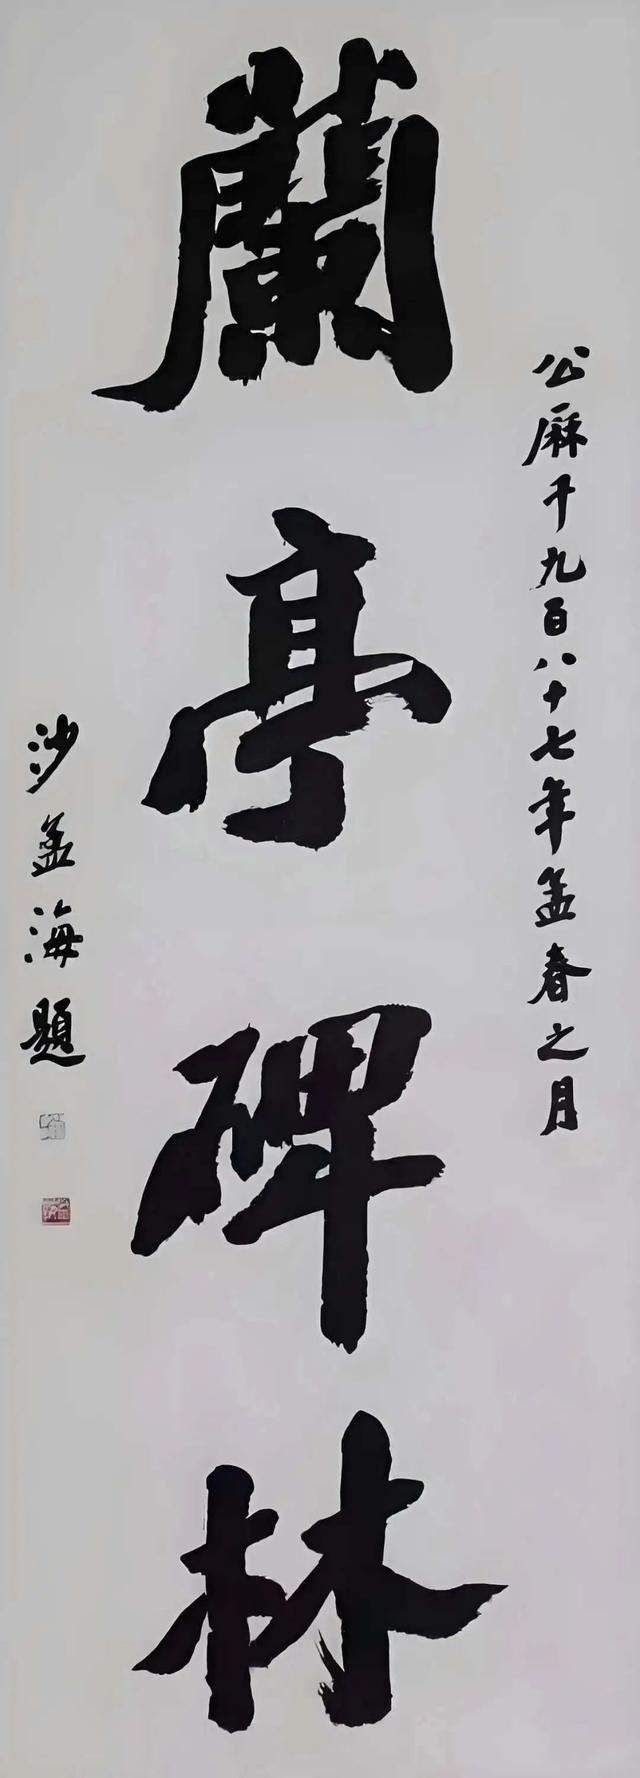 公厤千九百八十七年孟春之月
蘭亭碑林
沙孟海題